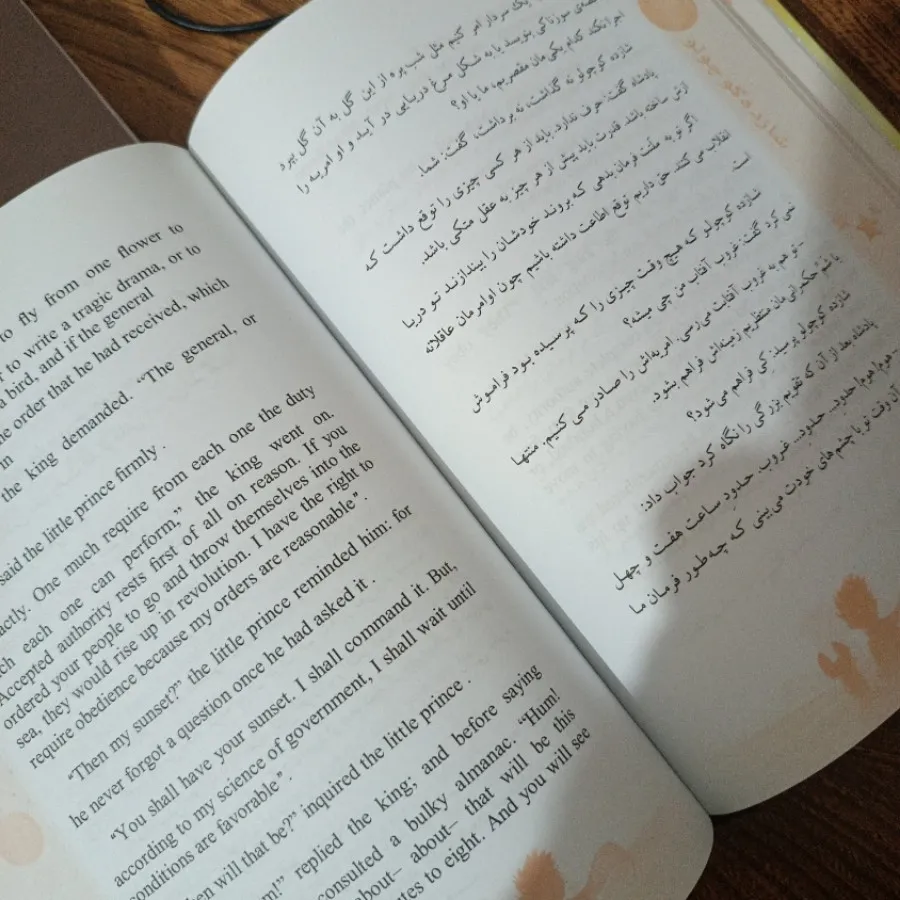 to fly from one flower to
r to write a tragic drama, or to
a bird, and if the general
he order that he had received, which
in
the king demanded. “The general, or
said the little prince firmly .
actly. One much require from each one the duty
ch each one can perform,” the king went on.
Accepted authority rests first of all on reason. If you
ordered your people to go and throw themselves into the
sea, they would rise up in revolution. I have the right to
require obedience because my orders are reasonable”.
“Then my sunset?” the little prince reminded him: for
he never forgot a question once he had asked it .
“You shall have your sunset. I shall command it. But,
according to my science of government, I shall wait until
conditions are favorable”.
hen will that be?” inquired the little prince .
m!” replied the king; and before saying
consulted a bulky almanac. “Hum!
about– about– that will be this
tes to eight. And you will see
یک سردار امر کنیم مثل شب پره از این گل به آن گل بپرد
سوزناکی بنویسد یا به شکل مرغ دریایی در آید و او امریه را
اجرا نکند کدام یکی‌مان مقصریم، ما یا او؟
شازده کوچولو نه گذاشت، نه برداشت، گفت: شما.
پادشاه گفت: حرف ندارد. باید از هر کسی چیزی را توقع داشت که
ازش ساخته باشد. قدرت باید پیش از هر چیز به عقل متکی باشد.
اگر تو به ملتت فرمان بدهی که بروند خودشان را بیندازند تو دریا
انقلاب می کنند. حق داریم توقع اطاعت داشته باشیم چون اوامرمان عاقلانه
است
شازده کوچولو که هیچ وقت چیزی را که پرسیده بود فراموش
نمی کرد گفت: غروب آفتاب من چی میشه؟
-تو هم به غروب آفتابت می‌رسی. امریه‌اش را صادر می کنیم. منتها
با شمّ حکمرانی‌مان منتظریم زمینه‌اش فراهم بشود.
شازده کوچولو پرسید: کِی فراهم می شود؟
پادشاه بعد از آن که تقویم بزرگی را نگاه کرد جواب داد:
-هوم! هوم! حدودِ... حدودِ... غروب. حدودِ ساعت هفت و چهل
آن وقت تو با چشم‌های خودت می‌بینی که چه‌طور فرمان ما
شازده کوچولو